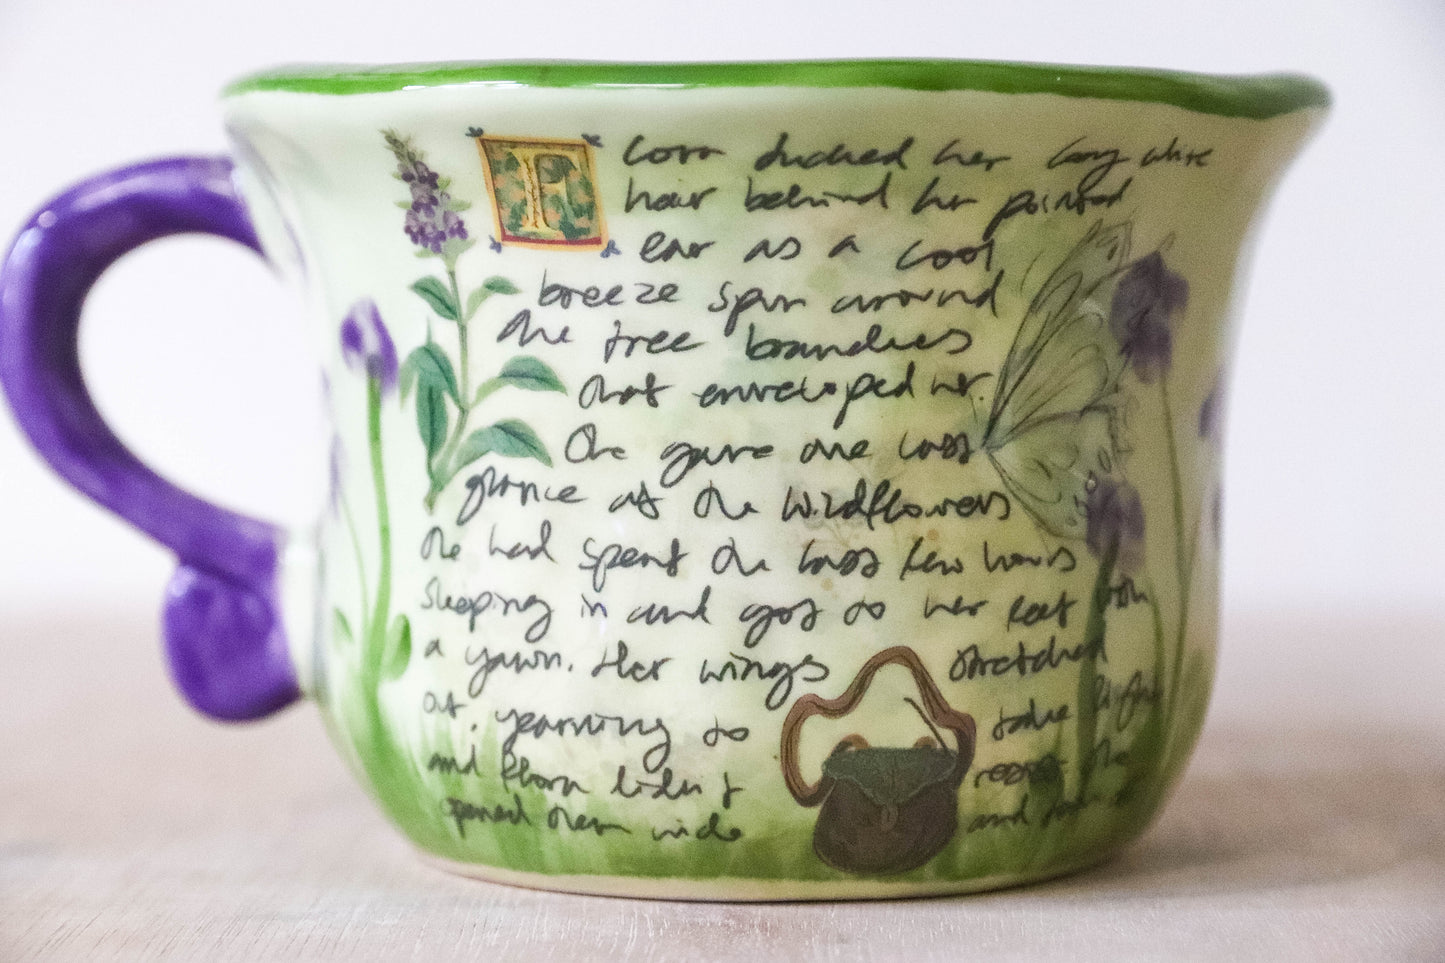 F
tucked her long white
hair behind her pointed
ear as a cool
breeze spun around
the tree branches
that enveloped her.
She gave one last
glance at the wildflowers
she had spent the last few hours
sleeping in and got to her feet with
a yawn. Her wings stretched
out, yearning to take
and didn't
opened them wide and